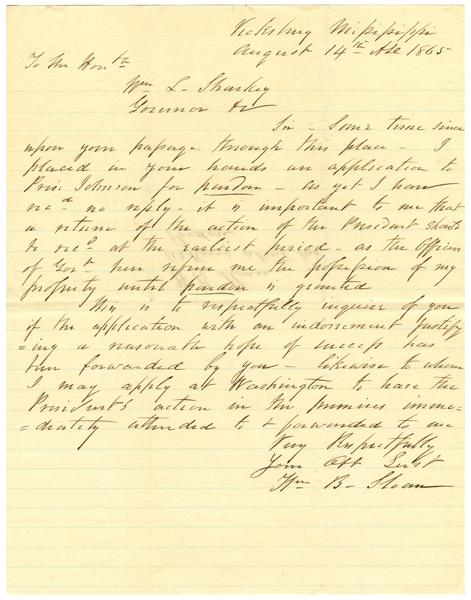 Vicksburg Mississippi
August 14th AD 1865
To the Honble
Wm L. Sharkey
Governor &c
Sir – Some time since
upon your passage through this place – I
placed in your hands an application to
Pres. Johnson for pardon – as yet I have
recd no reply – it is important to me that
a return of the action of the President should
be recd at the earliest period – as the officers
of Govt here refuse me the possession of my
property until pardon is granted
This is to respectfully inquire of you
if the application with an indorsement justify
=ing a reasonable hope of success has
been forwarded by you – likewise to whom
I may apply at Washington to have the
President's action in the premises imme=
=diately attended to & forwarded to me
Very Respectfully
Your Obt Servt
Wm B – Sloan